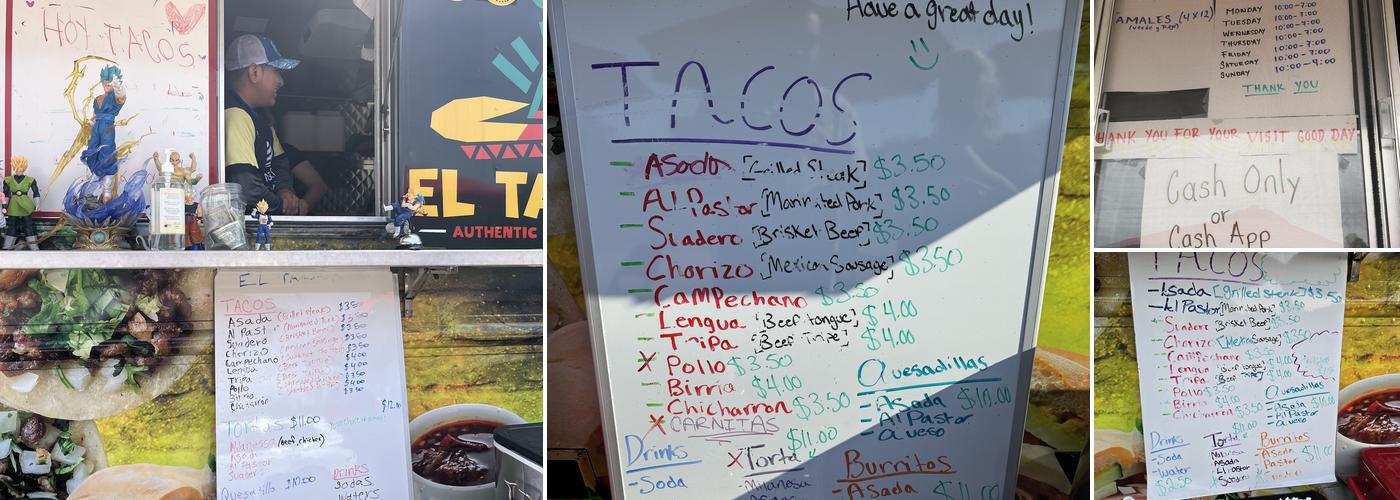 HOY TACOS
EL TA
AUTHENTIC
EL
TACOS
Asada (Grilled steak) $3.50
Al Past
Suadero
Chorizo
Campechano
Lengua
Tripa
Pollo
Birria
Chicharron
$11.00
Milanesa (Beef, chicken)
Asada
Al Pastor
Suader
Quesadilla $10.00
Drinks
Sodas
Waters
Have a great day!
TACOS
Asada [Grilled Steak] $3.50
Al Pastor [Marinated Pork] $3.50
Suadero [Brisket Beef] $3.50
Chorizo [Mexican Sausage] $3.50
Campechano $3.50
Lengua [Beef tongue] $4.00
Tripa [Beef Tripe] $4.00
X Pollo $3.50
Birria $4.00
Chicharron $3.50
X CARNITAS
Quesadillas
- Asada $10.00
- Al Pastor
- Queso
Drinks
- Soda
X Torta $11.00
- Milanesa
Burritos
- Asada $11.00
AMALES (4 X 12)
MONDAY 10:00-7:00
TUESDAY 10:00-7:00
WEDNESDAY 10:00-7:00
THURSDAY 10:00-7:00
FRIDAY 10:00-7:00
SATURDAY 10:00-7:00
SUNDAY 10:00-4:00
THANK YOU
HANK YOU FOR YOUR VISIT GOOD DAY
Cash Only
or
Cash App
TACOS
- Asada [grilled steak] $3.50
- Al Pastor [Marinated Pork] $3.50
Suadero [Brisket Beef]
Chorizo [Mexican Sausage]
Campechano
Lengua [Beef tongue]
Tripa [Beef
Pollo $3.50
Birria
Chicharron
Quesadillas
- Asada
- Al Pastor
- Queso
Drinks
- Soda
- Water
Torta
Milanesa
Asada
Al pastor
Burritos
- Asada
- Pastor